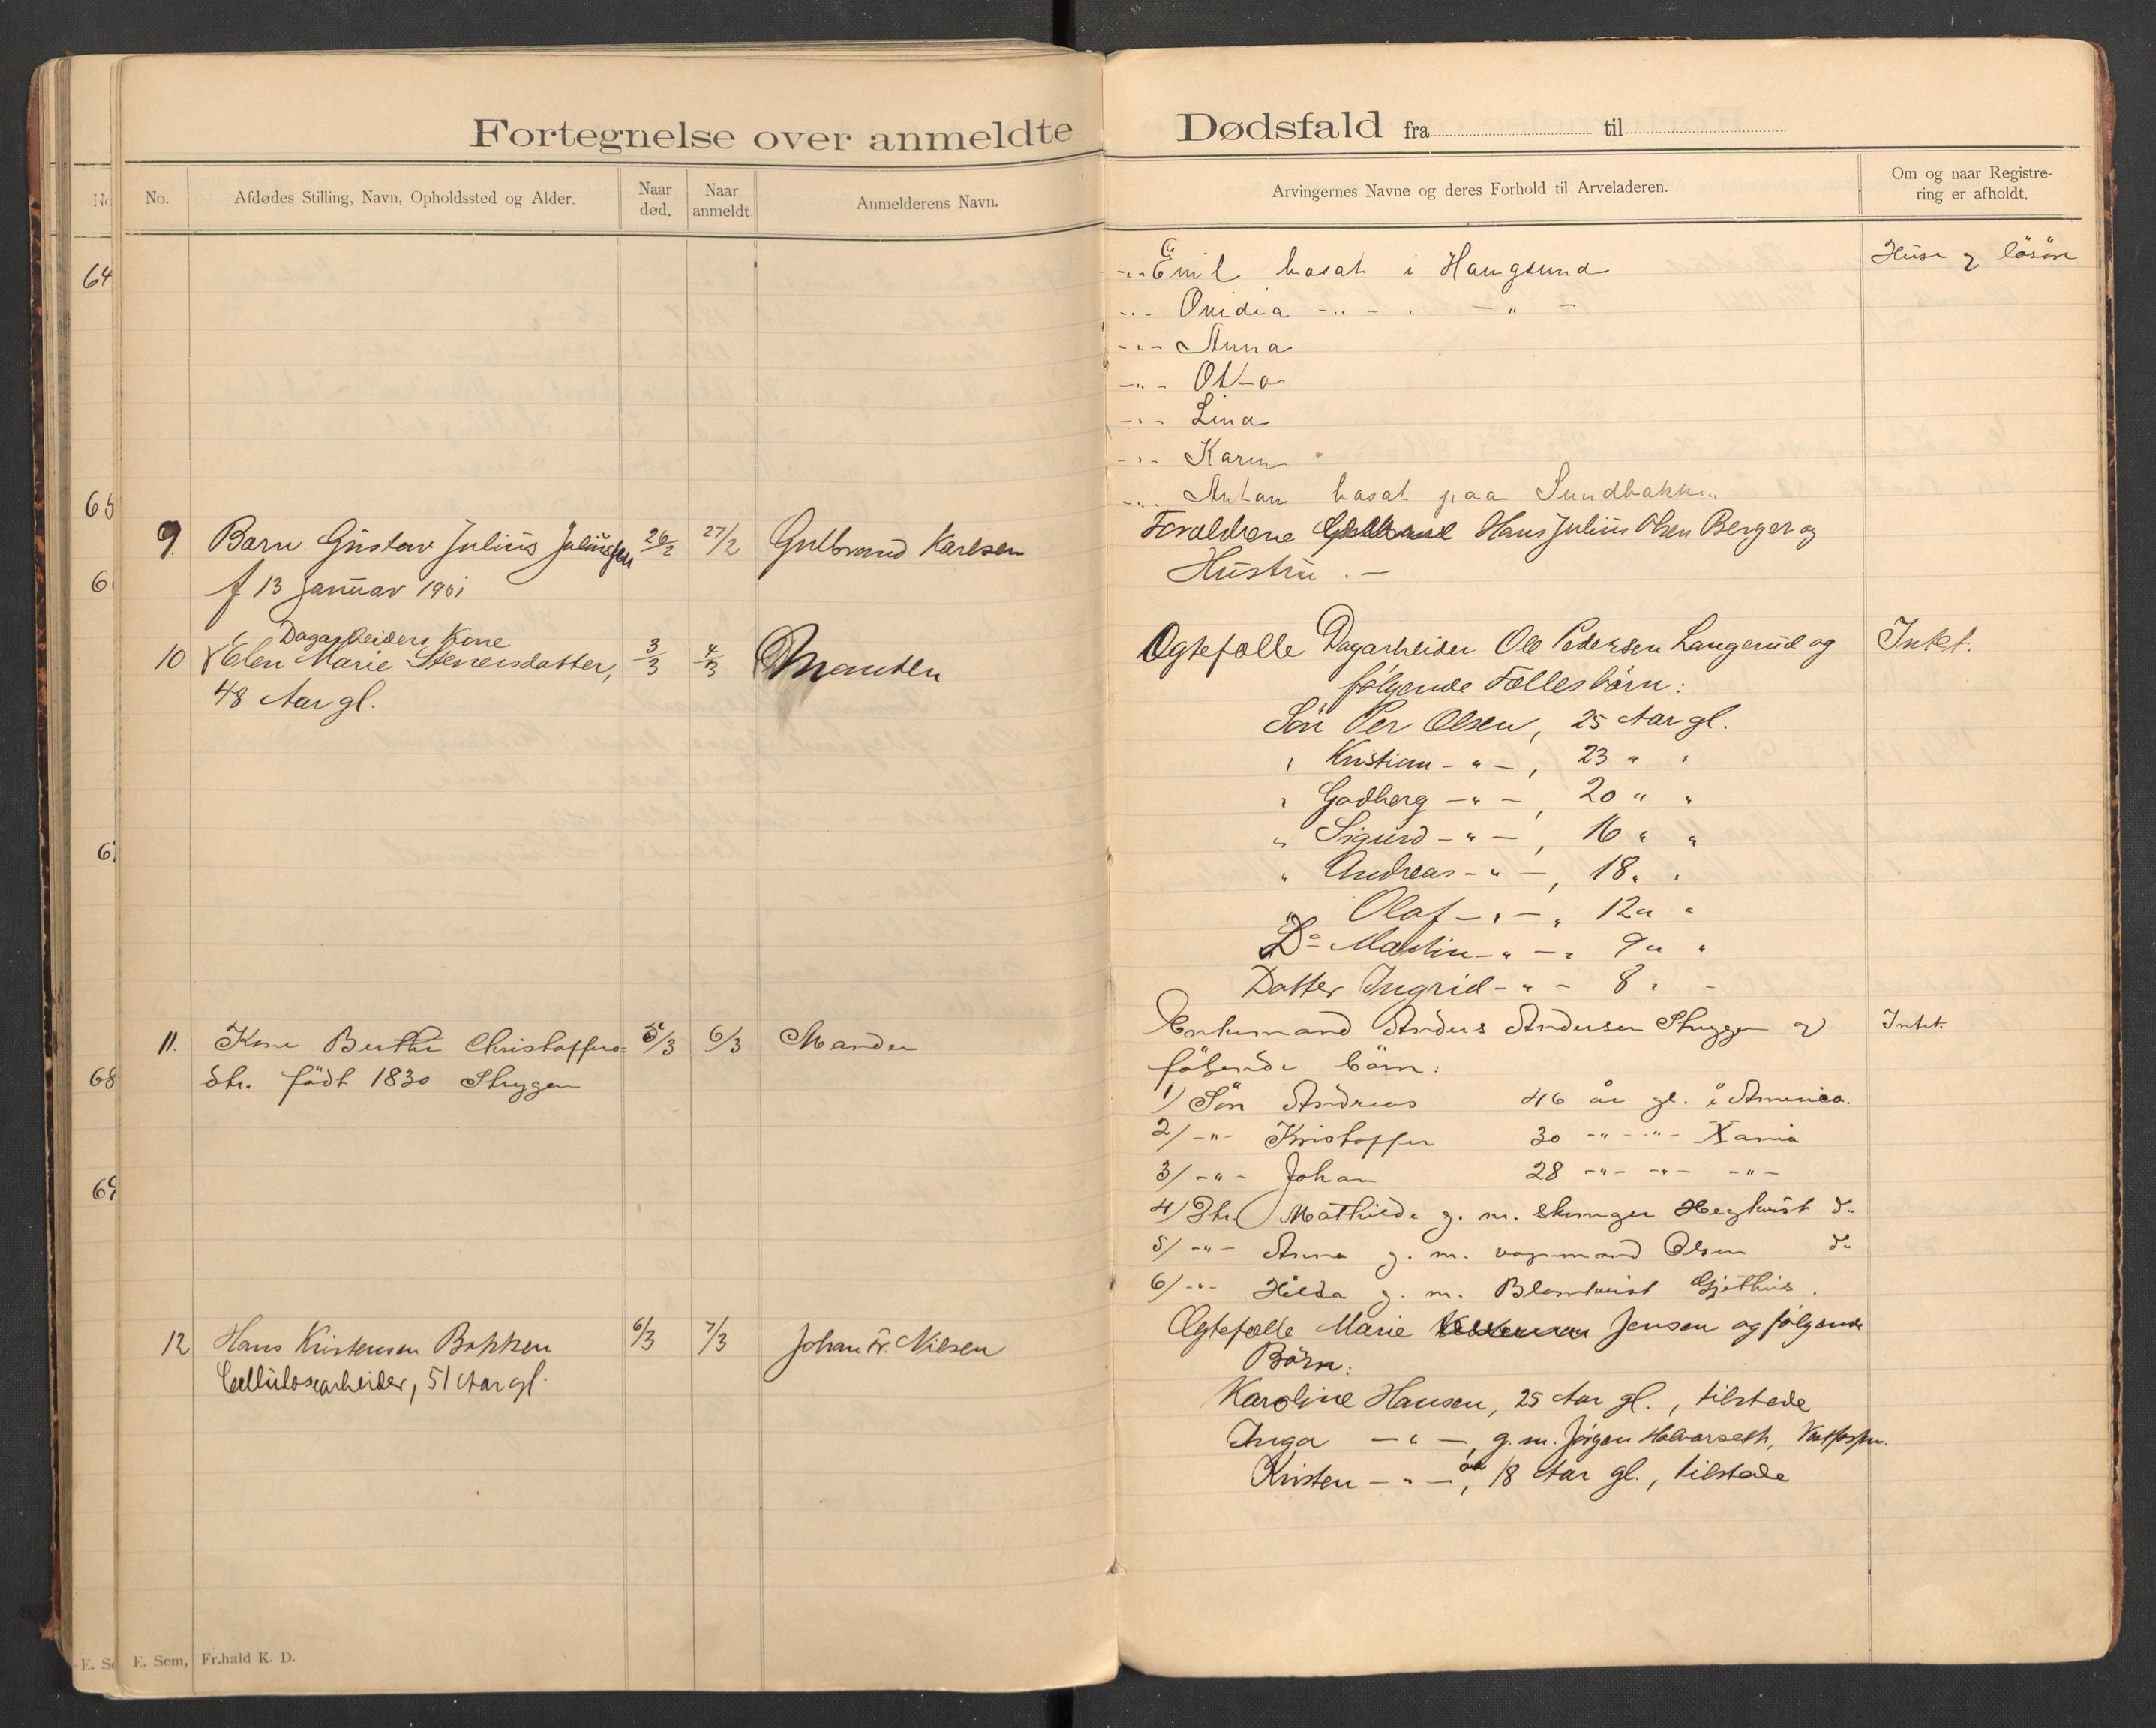 Fortegnelse over anmeldte Dødsfald fra til
No.
Afdødes Stilling, Navn, Opholdssted og Alder.
Naar død.
Naar anmeldt.
Anmelderens Navn.
Arvingernes Navne og deres Forhold til Arveladeren.
Om og naar Registre-
ring er afholdt.
64
65
68
69
-..- Emil bosat i Haugsund
Huse og lösöre
-..- Ovidia -..- - " -
-..- Anna
-..- Otto
-..- Lina
-..- Karen
-..- Anton bosat paa Sundbakken
9. Barn Gustav Julius Juliussen 26/2 27/2 Gulbrand Karlsen
f 13 Januar 1901
Forældrene Hans Julius Olsen Berger og
Hustru. -
Dagarbeiders Kone
10 Elen Marie Stenersdatter, 3/3 4/3 Manden
48 Aar gl.
Ogtefælle Dagarbeider Ole Pedersen Langerud og
Intet.
følgende Fællesbörn:
Sön Per Olsen, 25 Aar gl.
" Kristian - " -, 23 " "
" Godberg - " -, 20 " "
" Sigurd - " -, 16 " "
" Andreas - " -, 18 " "
" Olaf - " -, 12 " "
Do Martin - " -, 9 " "
Datter Ingrid - " - 8 " -
11. Kone Berthe Christoffers= 5/3 6/3 Manden
dtr. födt 1830 Stryggen
Enkemand Anders Andersen Stryggen og
Intet.
fölgende börn:
1) Sön Andreas 46 år gl. i America.
2/ -"- Kristoffer 30 -"- -"- Xania
3/ -"- Johan 28 -"- -"- -"-
4) Dtr. Mathilde g. m. Heglund do
5/ -"- Anna g. m. vognmand Olsen do
6/ -"- Hilda g. m. Blomkvist Gjethus.
12 Hans Kristensen Bakken 6/3 7/3 Johan Fr. Nilsen
Cellulosearbeider, 51 Aar gl.
Ægtefælle Marie Jensen og følgende
Börn:
Karoline Hansen, 25 Aar gl., tilstede
Inga - " -, g. m. Jørgen Halvorseth,
Kristen - " -, 18 Aar gl., tilstede
E. Sem, Fr.hald K. D.